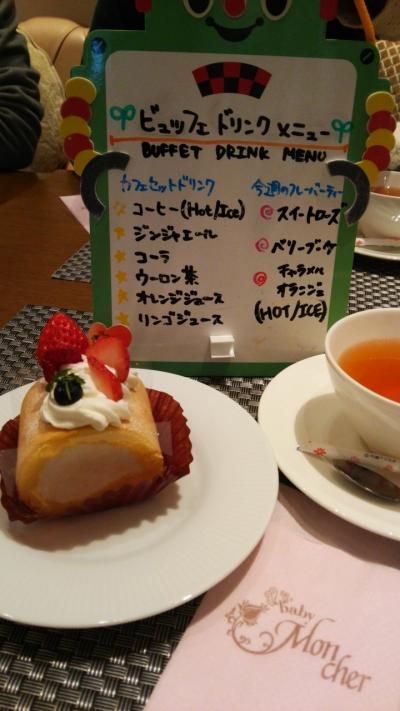 ビュッフェ ドリンク メニュー
BUFFET DRINK MENU
カフェセットドリンク
コーヒー(Hot/Ice)
ジンジャエール
コーラ
ウーロン茶
オレンジジュース
リンゴジュース
今週のフレーバーティー
スイートローズ
ベリーブーケ
チャラメル
オランジュ
(HOT/ICE)
baby
Mon
cher